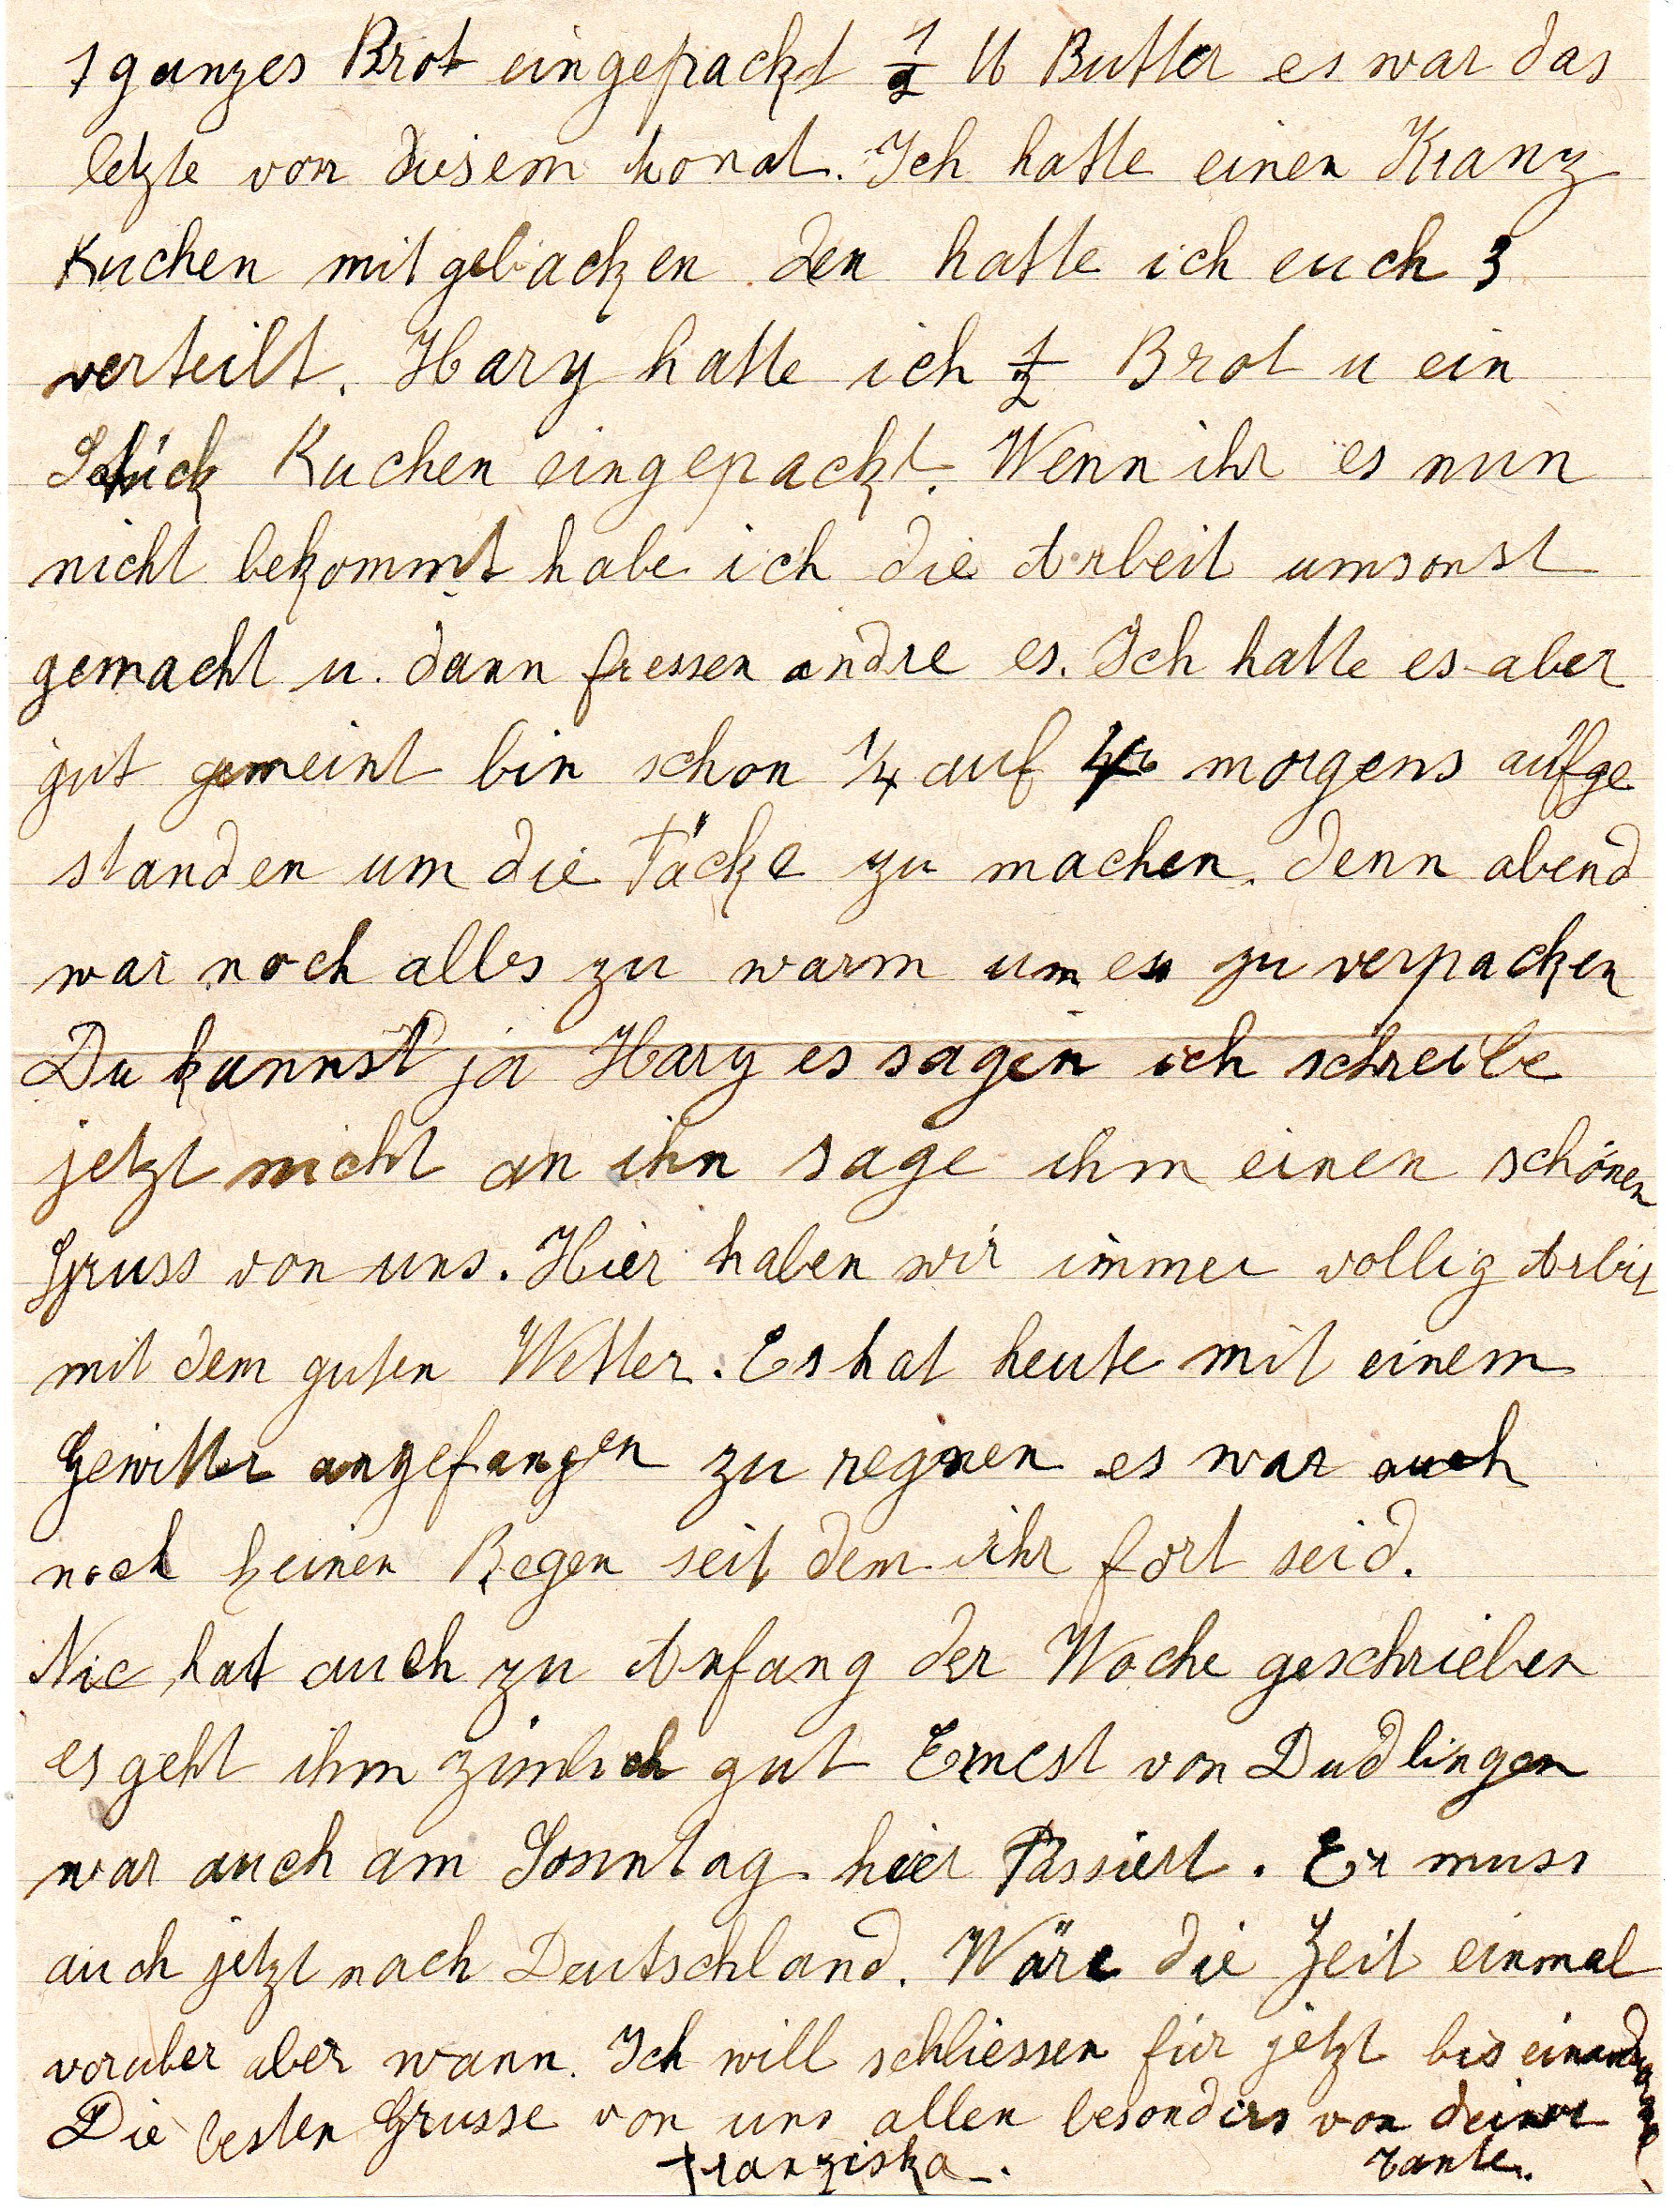 1 ganzes Brot eingepackt ½ ℔ Butter es war das
letzte von diesem Monat. Ich hatte einen Kranz
Kuchen mit gebacken den hatte ich euch 3
verteilt. Hary hatte ich ½ Brot u ein
Stück Kuchen eingepackt. Wenn ihr es nun
nicht bekommt habe ich die Arbeit umsonst
gemacht u. dann fressen andre es. Ich hatte es aber
gut gemeint bin schon ¼ auf morgens aufge
standen um die Päcke zu machen. denn abend
war noch alles zu warm um es zu verpacken
Du kannst ja Hary es sagen ich schreibe
jetzt nicht an ihn sage ihm einen schönen
Gruss von uns. Hier haben wir immer vollig Arbeit
mit dem guten Wetter. Es hat heute mit einem
Gewitter angefangen zu regnen es war auch
noch keinen Regen seit dem ihr fort seid.
Nic hat auch zu Anfang der Woche geschrieben
es geht ihm zimlich gut Ernest von Dudlingen
war auch am Sonntag hier Passiert. Er muss
auch jetzt nach Deutschland. Wäre die Zeit einmal
voruber aber wann. Ich will schliessen für jetzt bis
Die besten Grusse von uns allen besonders von deiner
Franziska. Tante.